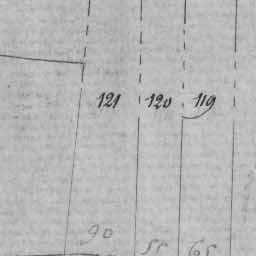 121 120 119
90 55 65